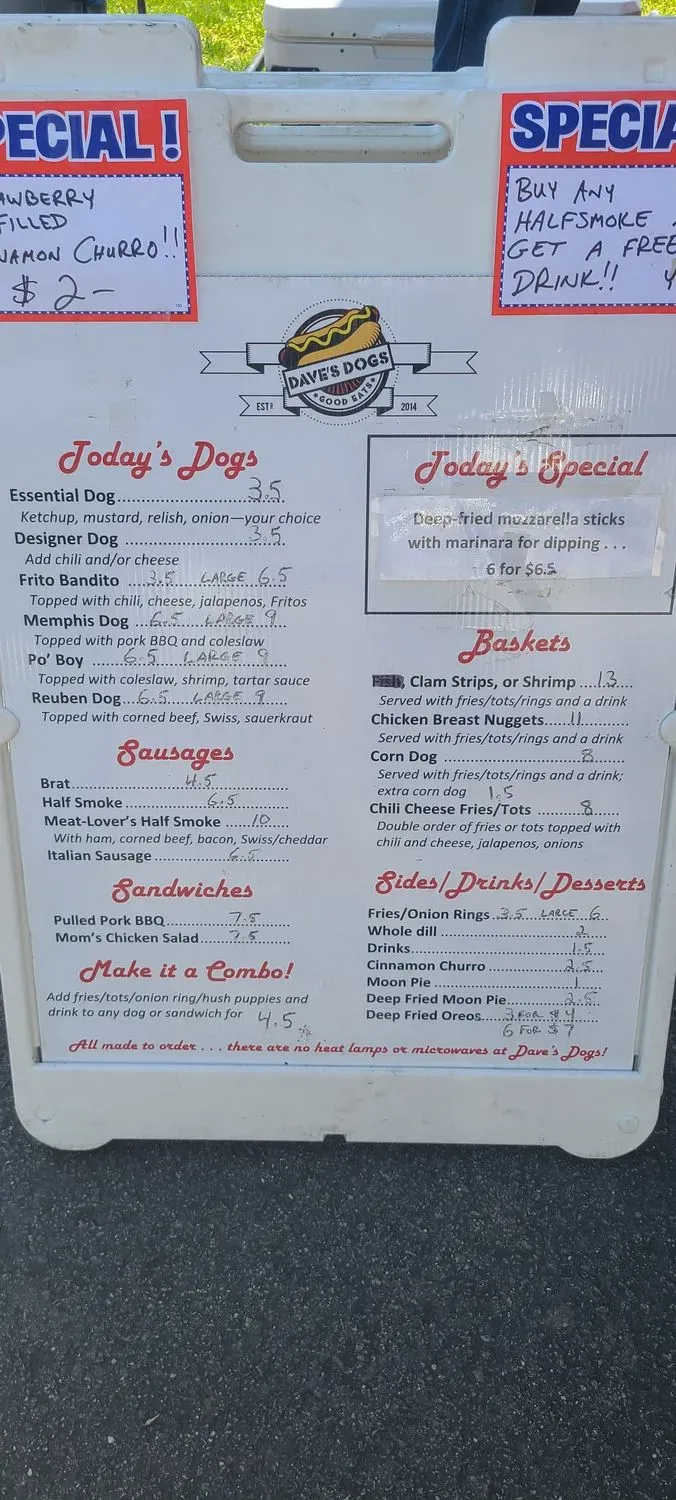 PECIAL!
AWBERRY
FILLED
NAMON CHURRO!!
$2-
SPECIA
BUY ANY
HALFSMOKE
GET A FREE
DRINK!!
DAVE'S DOGS
GOOD EATS
ESTD 2014
Today's Dogs
Essential Dog 3.5
Ketchup, mustard, relish, onion—your choice
Designer Dog 3.5
Add chili and/or cheese
Frito Bandito 3.5 LARGE 6.5
Topped with chili, cheese, jalapenos, Fritos
Memphis Dog 6.5 LARGE 9
Topped with pork BBQ and coleslaw
Po' Boy 6.5 LARGE 9
Topped with coleslaw, shrimp, tartar sauce
Reuben Dog 6.5 LARGE 9
Topped with corned beef, Swiss, sauerkraut
Sausages
Brat 4.5
Half Smoke 6.5
Meat-Lover's Half Smoke 10
With ham, corned beef, bacon, Swiss/cheddar
Italian Sausage 6.5
Sandwiches
Pulled Pork BBQ 7.5
Mom's Chicken Salad 7.5
Make it a Combo!
Add fries/tots/onion ring/hush puppies and
drink to any dog or sandwich for 4.5
Today's Special
Deep-fried mozzarella sticks
with marinara for dipping . . .
6 for $6.5
Baskets
, Clam Strips, or Shrimp 13
Served with fries/tots/rings and a drink
Chicken Breast Nuggets 11
Served with fries/tots/rings and a drink
Corn Dog 8
Served with fries/tots/rings and a drink;
extra corn dog 1.5
Chili Cheese Fries/Tots 8
Double order of fries or tots topped with
chili and cheese, jalapenos, onions
Sides/Drinks/Desserts
Fries/Onion Rings 3.5 LARGE 6
Whole dill 2
Drinks 1.5
Cinnamon Churro 2.5
Moon Pie 1
Deep Fried Moon Pie 2.5
Deep Fried Oreos 3 FOR $4
6 FOR $7
All made to order . . . there are no heat lamps or microwaves at Dave's Dogs!